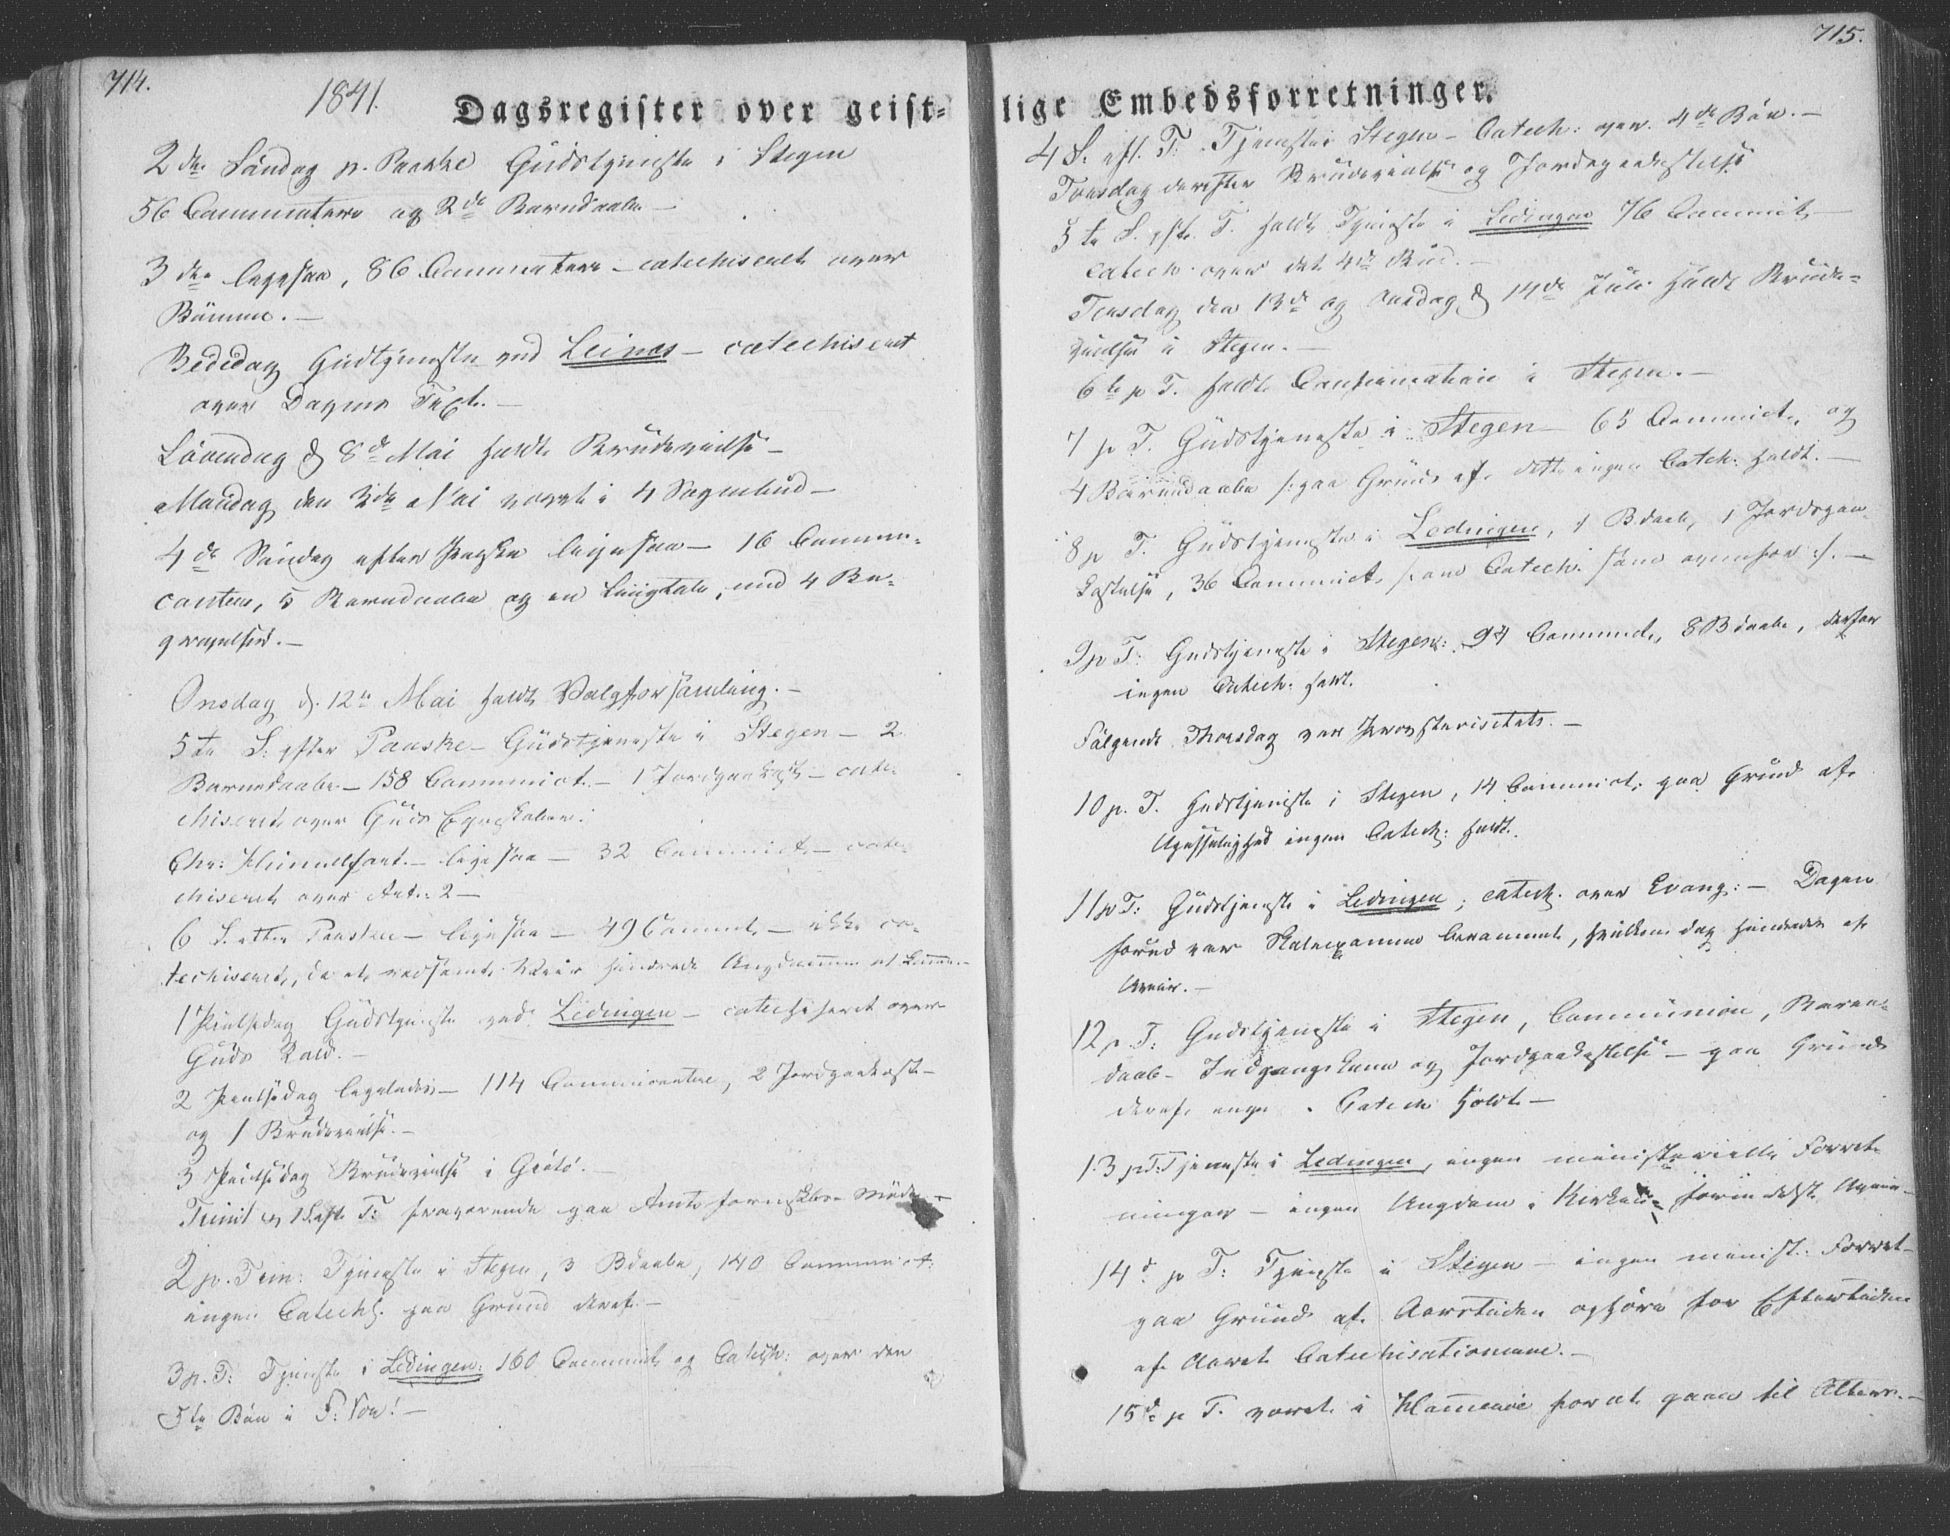 714.
1841.
Dagsregister over geist-
2den Søndag p. Paaske Gudstjeneste i Stegen
56 Communicantere og 2de Barnedaabe —
3die ligesaa, 86 Communicantere — catechiseret over
Bønnen. —
Bededag Gudstjeneste ved Leines — catechiseret
over Dagens Text. —
Løverdag d 8de Mai holdt Brudevielse —
Mandag den 3die Mai været i 4 Sognebud —
4de Søndag efter Paaske ligesaa — 16 Communi-
canter, 5 Barnedaabe og en Liigtale, med 4 Be-
gravelser. —
Onsdag d. 12te Mai holdt Valgforsamling. —
5te S. efter Paaske — Gudstjeneste i Stegen — 2
Barnedaabe — 158 Communict. — 1 Jordpaakast. — cate-
chiseret over Guds Egenskaber.
Chr: Himmelfart. — ligesaa — 32 Communict. — cate-
chiseret over Art. 2 —
6 S. efter Paasken — ligesaa — 49 Communt. — ikke ca-
techiseret, da et voldsomt Veir hindrede Ungdommen at komme. —
1 Pintsedag Gudstjeneste ved Lødingen — catechiseret over
Guds Raad. —
2 Pintsedag ligeledes — 114 Communicantere, 2 Jordpaakast —
og 1 Brudevielse. —
3 Pintsedag Brudevielse i
Trinit og 1 S. eft. T: fraværende paa Amtsformskabs Møde —
2 p. Trin: Tjeneste i Stegen, 3 Bdaabe, 140 Communict:
ingen Catech. paa Grund deraf. —
3 p. T: Tjeneste i Lødingen: 160 Communict. og Catech: over den
5te Bøn i F: Vor! —
715.
lige Embedsforretninger.
4 S. eft. T: Tjeneste i Stegen — Catech: over 4de Bøn. —
Torsdag derefter Brudevielse og Jordpaakastelse
5te S. eft. T. holdt Tjeneste i Lødingen 76 Communict. —
catech. over det 4de Bud. —
Tirsdag den 13de og Onsdag d 14de Juli holdt Brude-
vielser i Stegen. —
6te p T. holdt Confirmation i Stegen. —
7 p T. Gudstjeneste i Stegen — 65 Communict. og
4 Barnedaabe /: paa Grund af dette ingen Catech. holdt. —
8 p T. Gudstjeneste i Lødingen, 1 Bdaab, 1 Jordspaa-
kastelse, 36 Communict. /: om Catech. som ovenfor :/. —
9 p T: Gudstjeneste i Stegen: 94 Communict., 8 Bdaabe, derfor
ingen Catech. holdt.
Følgende Thorsdag var Provstevisitats. —
10 p. T. Gudstjeneste i Stegen, 14 Communict. paa Grund af
Upasselighed ingen Catech: holdt.
11 p T: Gudstjeneste i Lødingen; catech. over Evang: — Dagen
forud var Skoleexamen berammet, hvilken dog hindredes af
Uveir. —
12 p. T: Gudstjeneste i Stegen, Communion, Barne-
daab — Indgangskone og Jordpaakastelse — paa Grund
deraf ingen Catech holdt —
13 p T: Tjeneste i Lødingen, ingen ministerielle Forret-
ninger — ingen Ungdom i Kirken formedelst Uveir —
14de p T: Tjeneste i Stegen — ingen minist. Forret —
paa Grund af Aarstiden ophøre for Eftertiden
af Aaret Catechisationerne. —
15de p T. været i Hammerø for at gaae til Alters. —